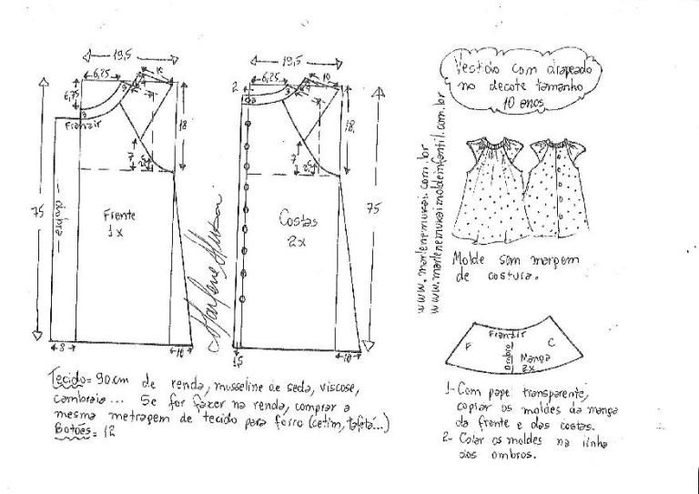 19,5
6,25
10
6,75
7
18
75
Franzir
dobra
Frente
1x
7
2,5
8
10
19,5
2
6,25
10
7
18
75
Costas
2x
7
2,5
1,5
10
Marlene Mukai
Vestido com drapeado
no decote tamanho
10 anos
www.marlenemukai.com.br
www.marlenemukaimoldeinfantil.com.br
Molde sem margem
de costura.
Franzir
F
Ombro
C
Manga
2x
Tecido = 90cm de renda, musseline de seda, viscose,
cambraia... Se for fazer na renda, comprar a
mesma metragem de tecido para forro (cetim, tafetá...)
Botões = 12
1- Com pape transparente,
copiar os moldes da manga
da frente e das costas.
2- Colar os moldes na linha
dos ombros.